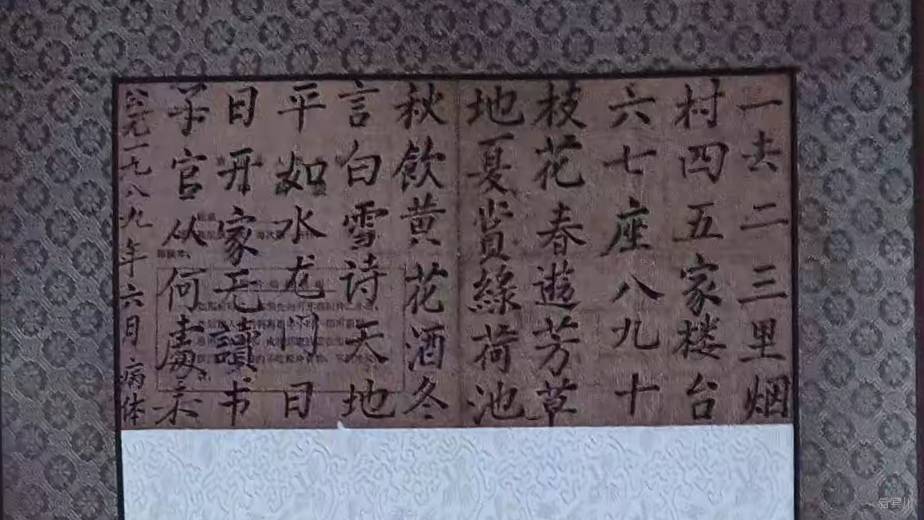 一去二三里烟
村四五家楼台
六七座八九十
枝花春遊芳草
地夏赏綠荷池
秋飲黄花酒冬
言白雪诗天地
平如水龙日
日开家无讀书
子官从何處来
公元一九八九年六月病体